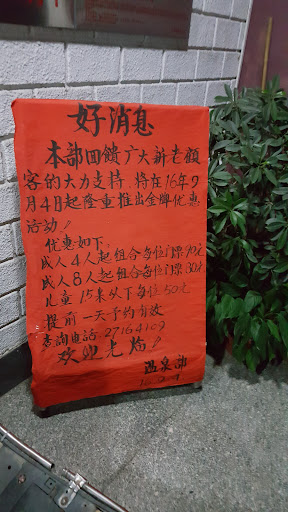 好消息
本部回馈广大新老顾
客的大力支持，将在16年9
月4日起隆重推出全牌优惠
活动！
优惠如下：
成人4人起组合每位门票70元
成人8人起组合每位门票30元
儿童1.5米以下每位50元
提前一天予约有效
查询电话：27164109
欢迎光临！
温泉部